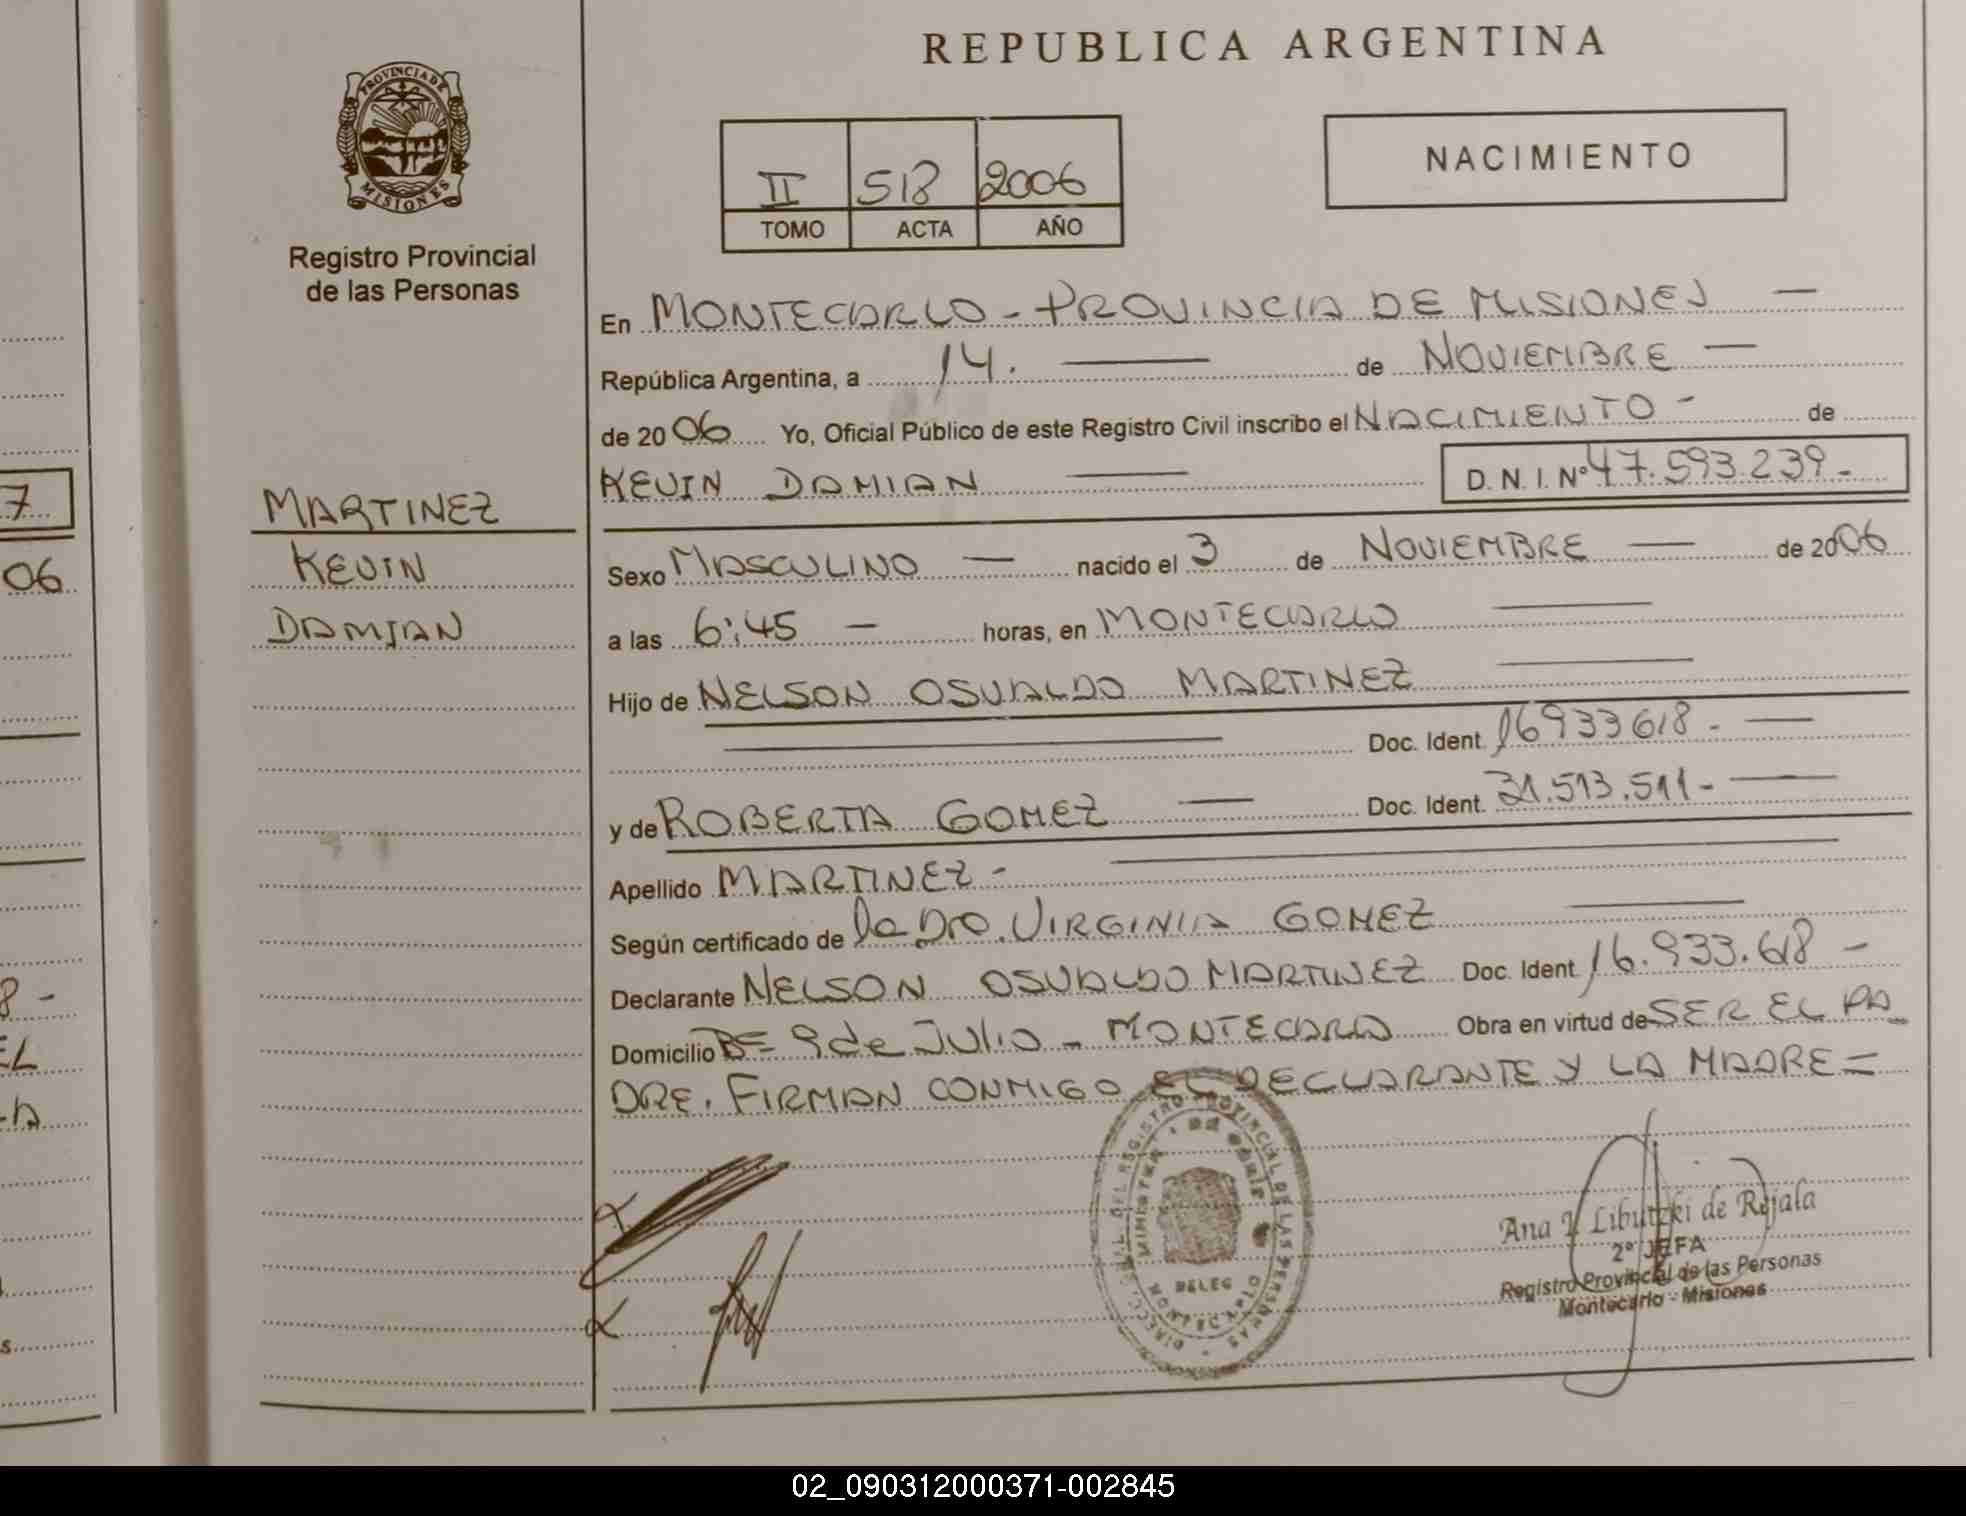 REPUBLICA ARGENTINA
PROVINCIA DE
MISIONES
Registro Provincial
de las Personas
II 518 2006
TOMO ACTA AÑO
NACIMIENTO
En MONTECARLO - PROVINCIA DE MISIONES —
República Argentina, a 14. — de NOVIEMBRE —
de 2006 Yo, Oficial Público de este Registro Civil inscribo el NACIMIENTO - de
KEVIN DAMIAN — D. N. I. Nº 47.593.239-
MARTINEZ
KEVIN
DAMIAN
Sexo MASCULINO — nacido el 3 de NOVIEMBRE — de 2006
a las 6:45 — horas, en MONTECARLO —
Hijo de NELSON OSVALDO MARTINEZ —
— Doc. Ident. 16933618. —
y de ROBERTA GOMEZ — Doc. Ident. 31.513.511- —
Apellido MARTINEZ - —
Según certificado de la Dra. VIRGINIA GOMEZ —
Declarante NELSON OSVALDO MARTINEZ Doc. Ident 16.933.618 -
Domicilio Bº 9 de JULIO - MONTECARLO Obra en virtud de SER EL PA_
DRE. FIRMAN CONMIGO EL DECLARANTE Y LA MADRE =
DIRECC. GRAL. DEL REGISTRO PROVINCIAL DE LAS PERSONAS
MONTECARLO
Ana I. Libutzki de Rejala
2º JEFA
Registro Provincial de las Personas
Montecarlo - Misiones
7
06
8 -
EL
02_090312000371-002845